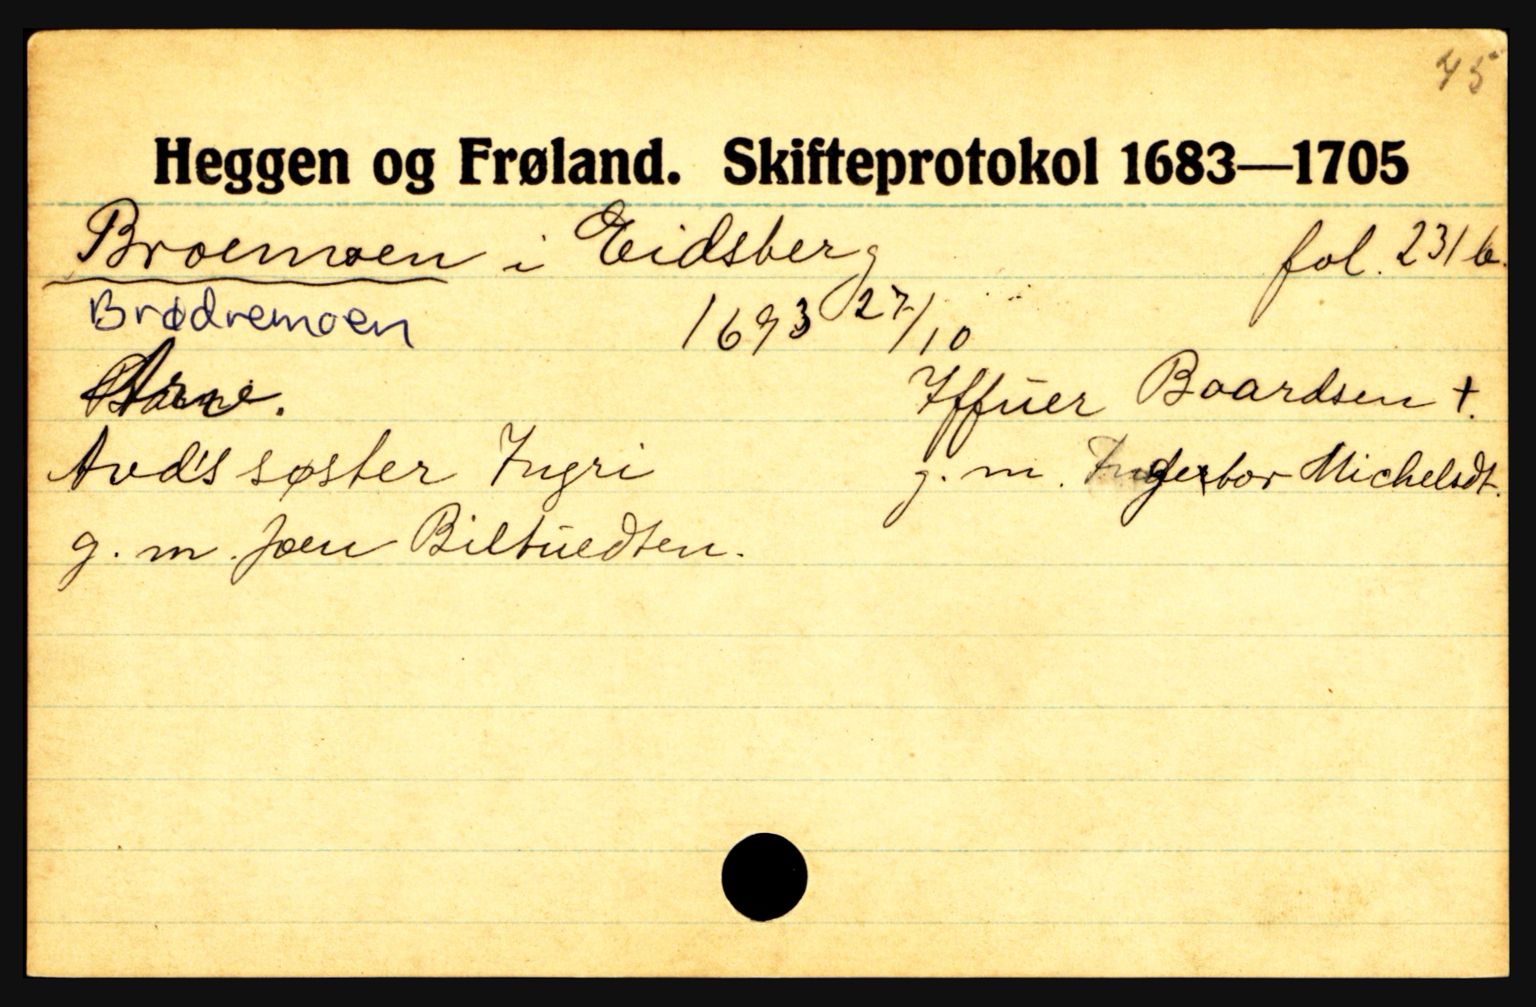 45
Heggen og Frøland. Skifteprotokol 1683—1705
Broemoen i Eidsberg fol. 231 b.
Brødremoen 1693 27/10
Arve. Iffüer Boardsen +.
Avd's søster Ingri g. m. Ingerbor Michelsdt.
g. m. Joen Biltüedten.